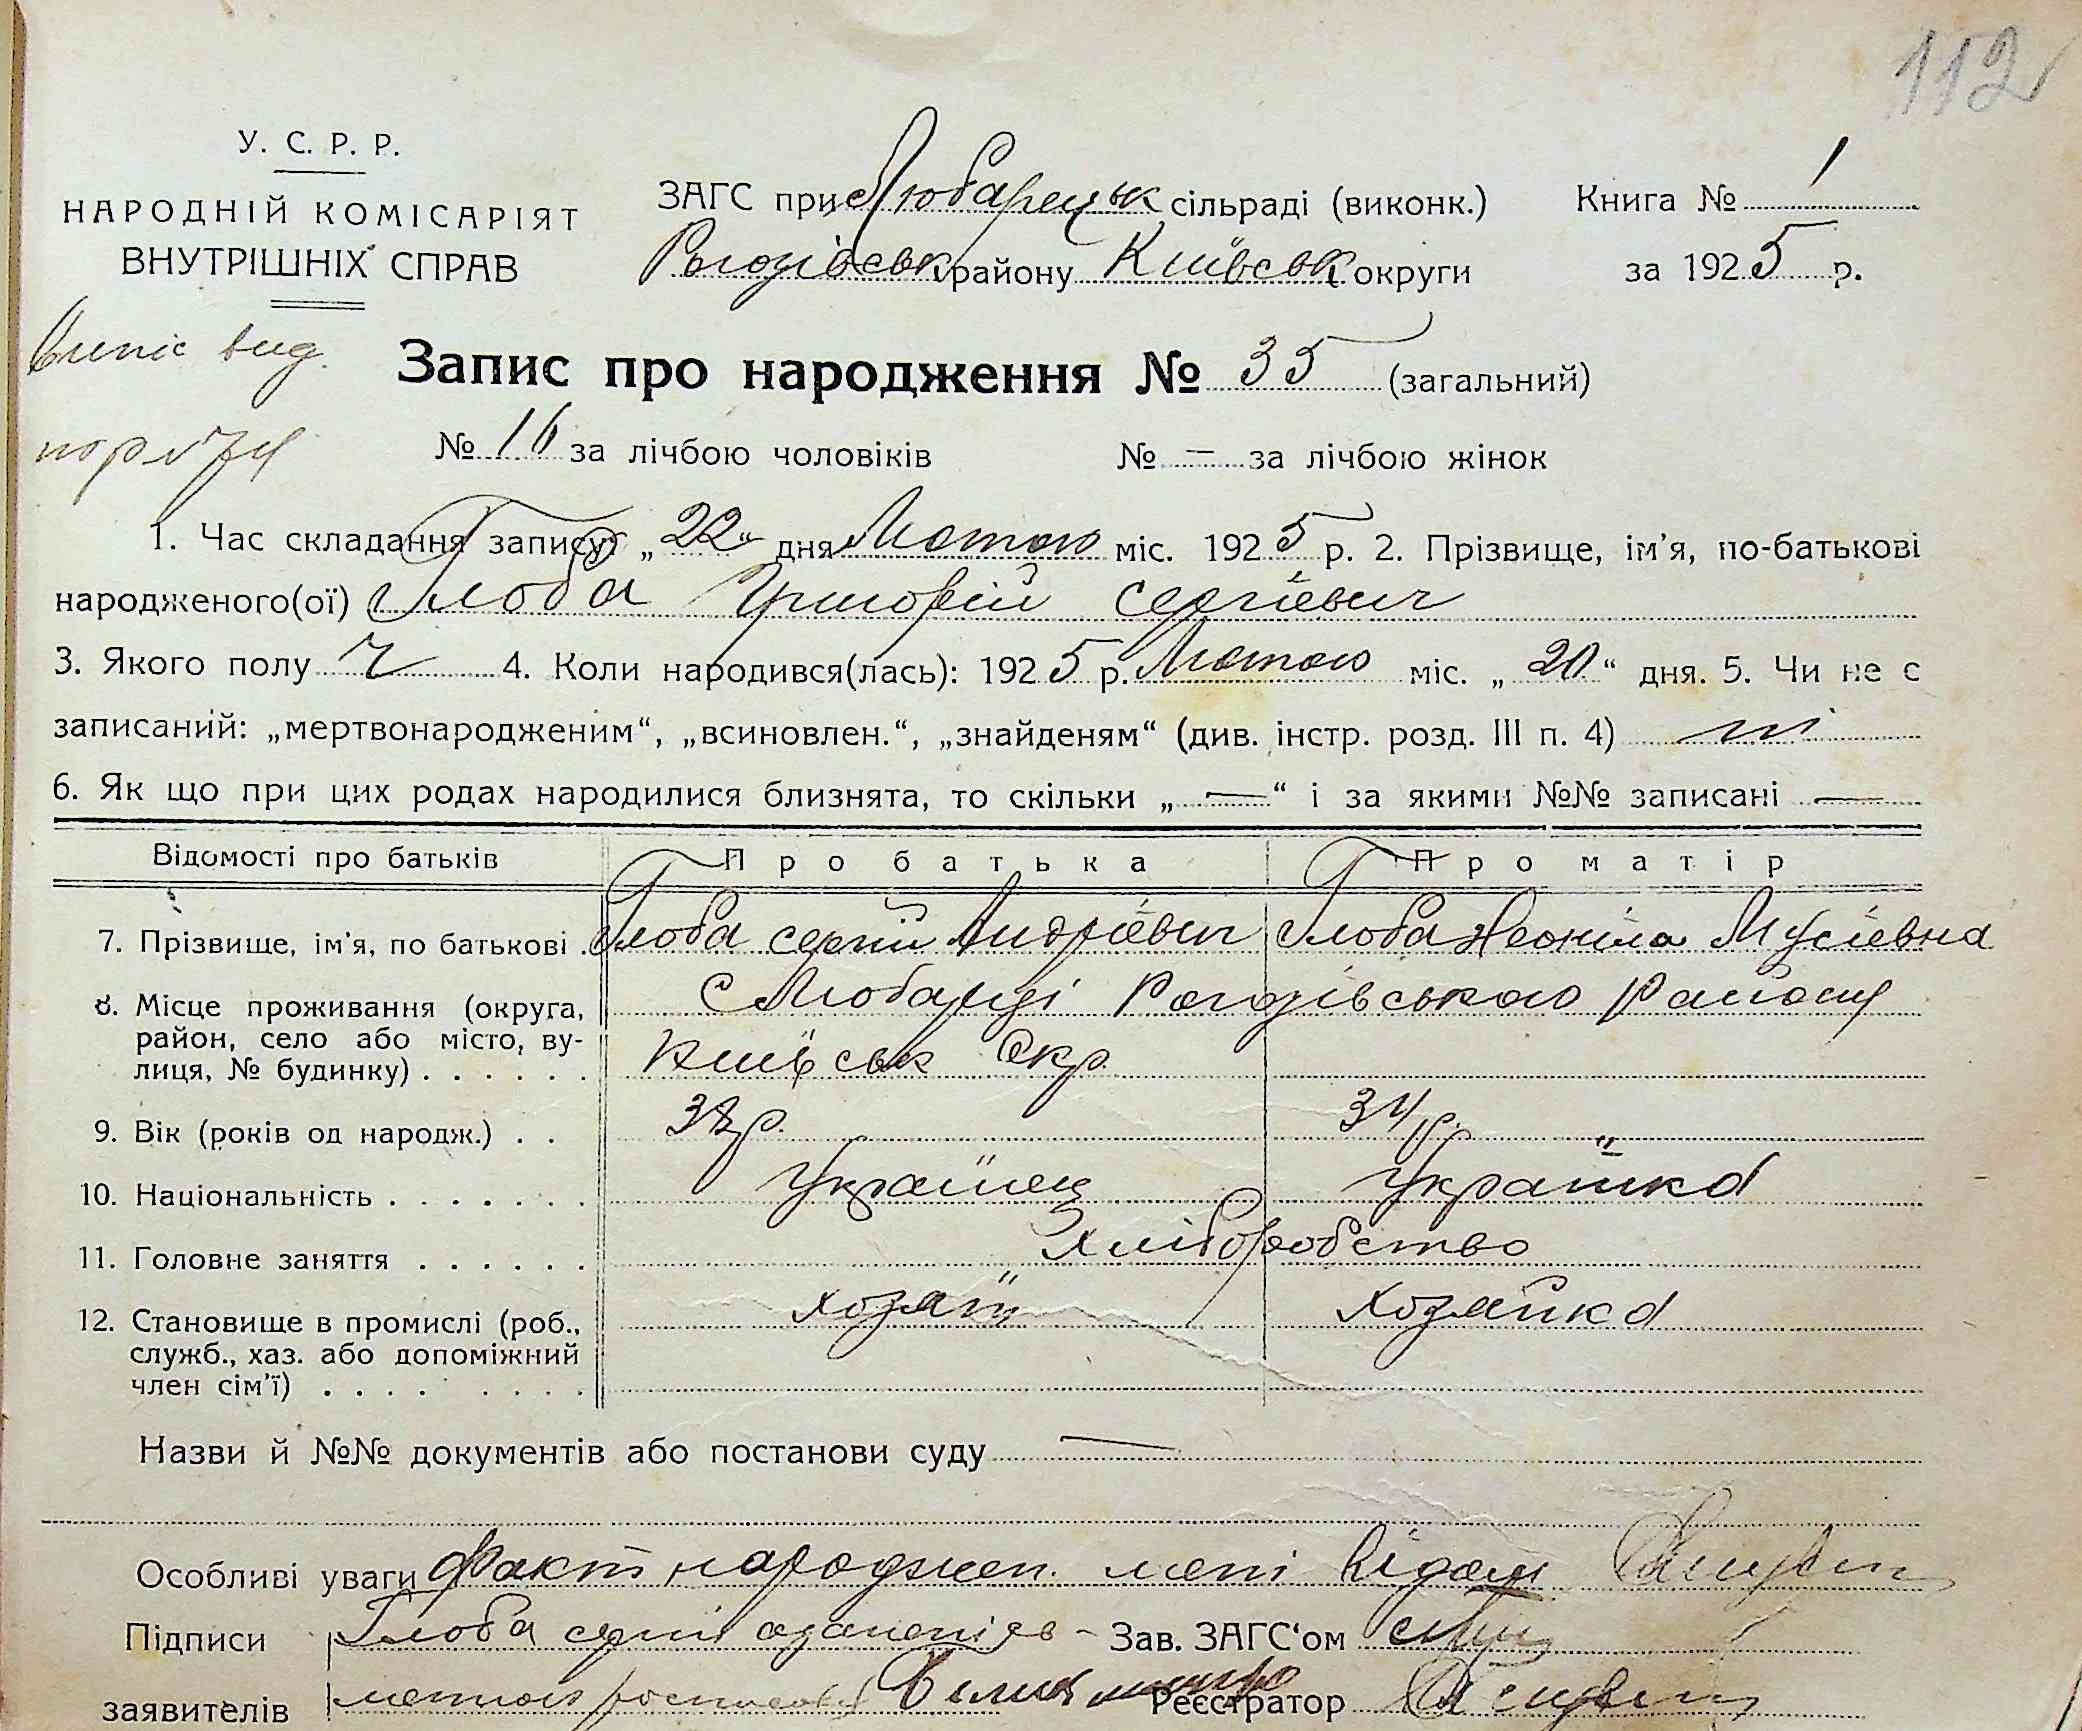 112
У. С. Р. Р.
НАРОДНІЙ КОМІСАРІЯТ
ВНУТРІШНІХ СПРАВ
ЗАГС при Любарецьк сільраді (виконк.)
Рогозівськ району Київськ округи
Книга № 1
за 1925 р.
Випіс вид.
Запис про народження № 35 (загальний)
№ 16 за лічбою чоловіків № — за лічбою жінок
1. Час складання запису: „22“ дня Лютого міс. 1925 р. 2. Прізвище, ім'я, по-батькові
народженого(ої) Глоба Григорій Сергієвич
3. Якого полу ч 4. Коли народився(лась): 1925 р. Лютого міс. „20“ дня. 5. Чи не є
записаний: „мертвонародженим“, „всиновлен.“, „знайденям“ (див. інстр. розд. III п. 4) ні
6. Як що при цих родах народилися близнята, то скільки „—“ і за якими №№ записані —
Відомості про батьків Про батька Про матір
7. Прізвище, ім'я, по батькові Глоба Сергій Андрієвич Глоба Неоніла Мусіевна
8. Місце проживання (округа, с Любарці Рогозівського Району
район, село або місто, ву-
лиця, № будинку) . . . . . . Київськ Окр.
9. Вік (років од народж.) . . р. 34 р.
10. Національність . . . . . . . Українец Українка
11. Головне заняття . . . . . . Хліборобство
12. Становище в промислі (роб., хозяїн хозяйка
служб., хаз. або допоміжний
член сім'ї) . . . . . . . . .
Назви й №№ документів або постанови суду —
Особливі уваги Факт народжен. мені відом
Підписи Глоба Зав. ЗАГС'ом
заявителів Реєстратор